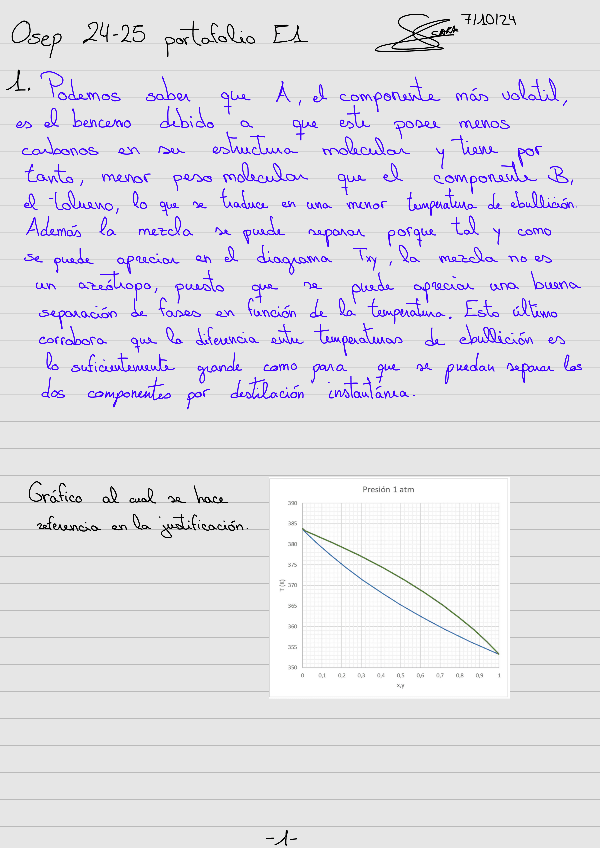 Osep 24-25 portafolio E1
7/10/24
1. Podemos saber que A, el componente más volatil,
es el benceno debido a que este posee menos
carbonos en su estructura molecular y tiene por
tanto, menor peso molecular que el componente B,
el tolueno, lo que se traduce en una menor temperatura de ebullición.
Además la mezcla se puede separar porque tal y como
se puede apreciar en el diagrama Txy, la mezcla no es
un azeótropo, puesto que se puede apreciar una buena
separación de fases en función de la temperatura. Esto último
corrobora que la diferencia entre temperaturas de ebullición es
lo suficientemente grande como para que se puedan separar los
dos componentes por destilación instantánea.
Gráfico al cual se hace
referencia en la justificación.
Presión 1 atm
390
385
380
375
370
365
360
355
350
T (K)
0 0,1 0,2 0,3 0,4 0,5 0,6 0,7 0,8 0,9 1
x,y
-1-